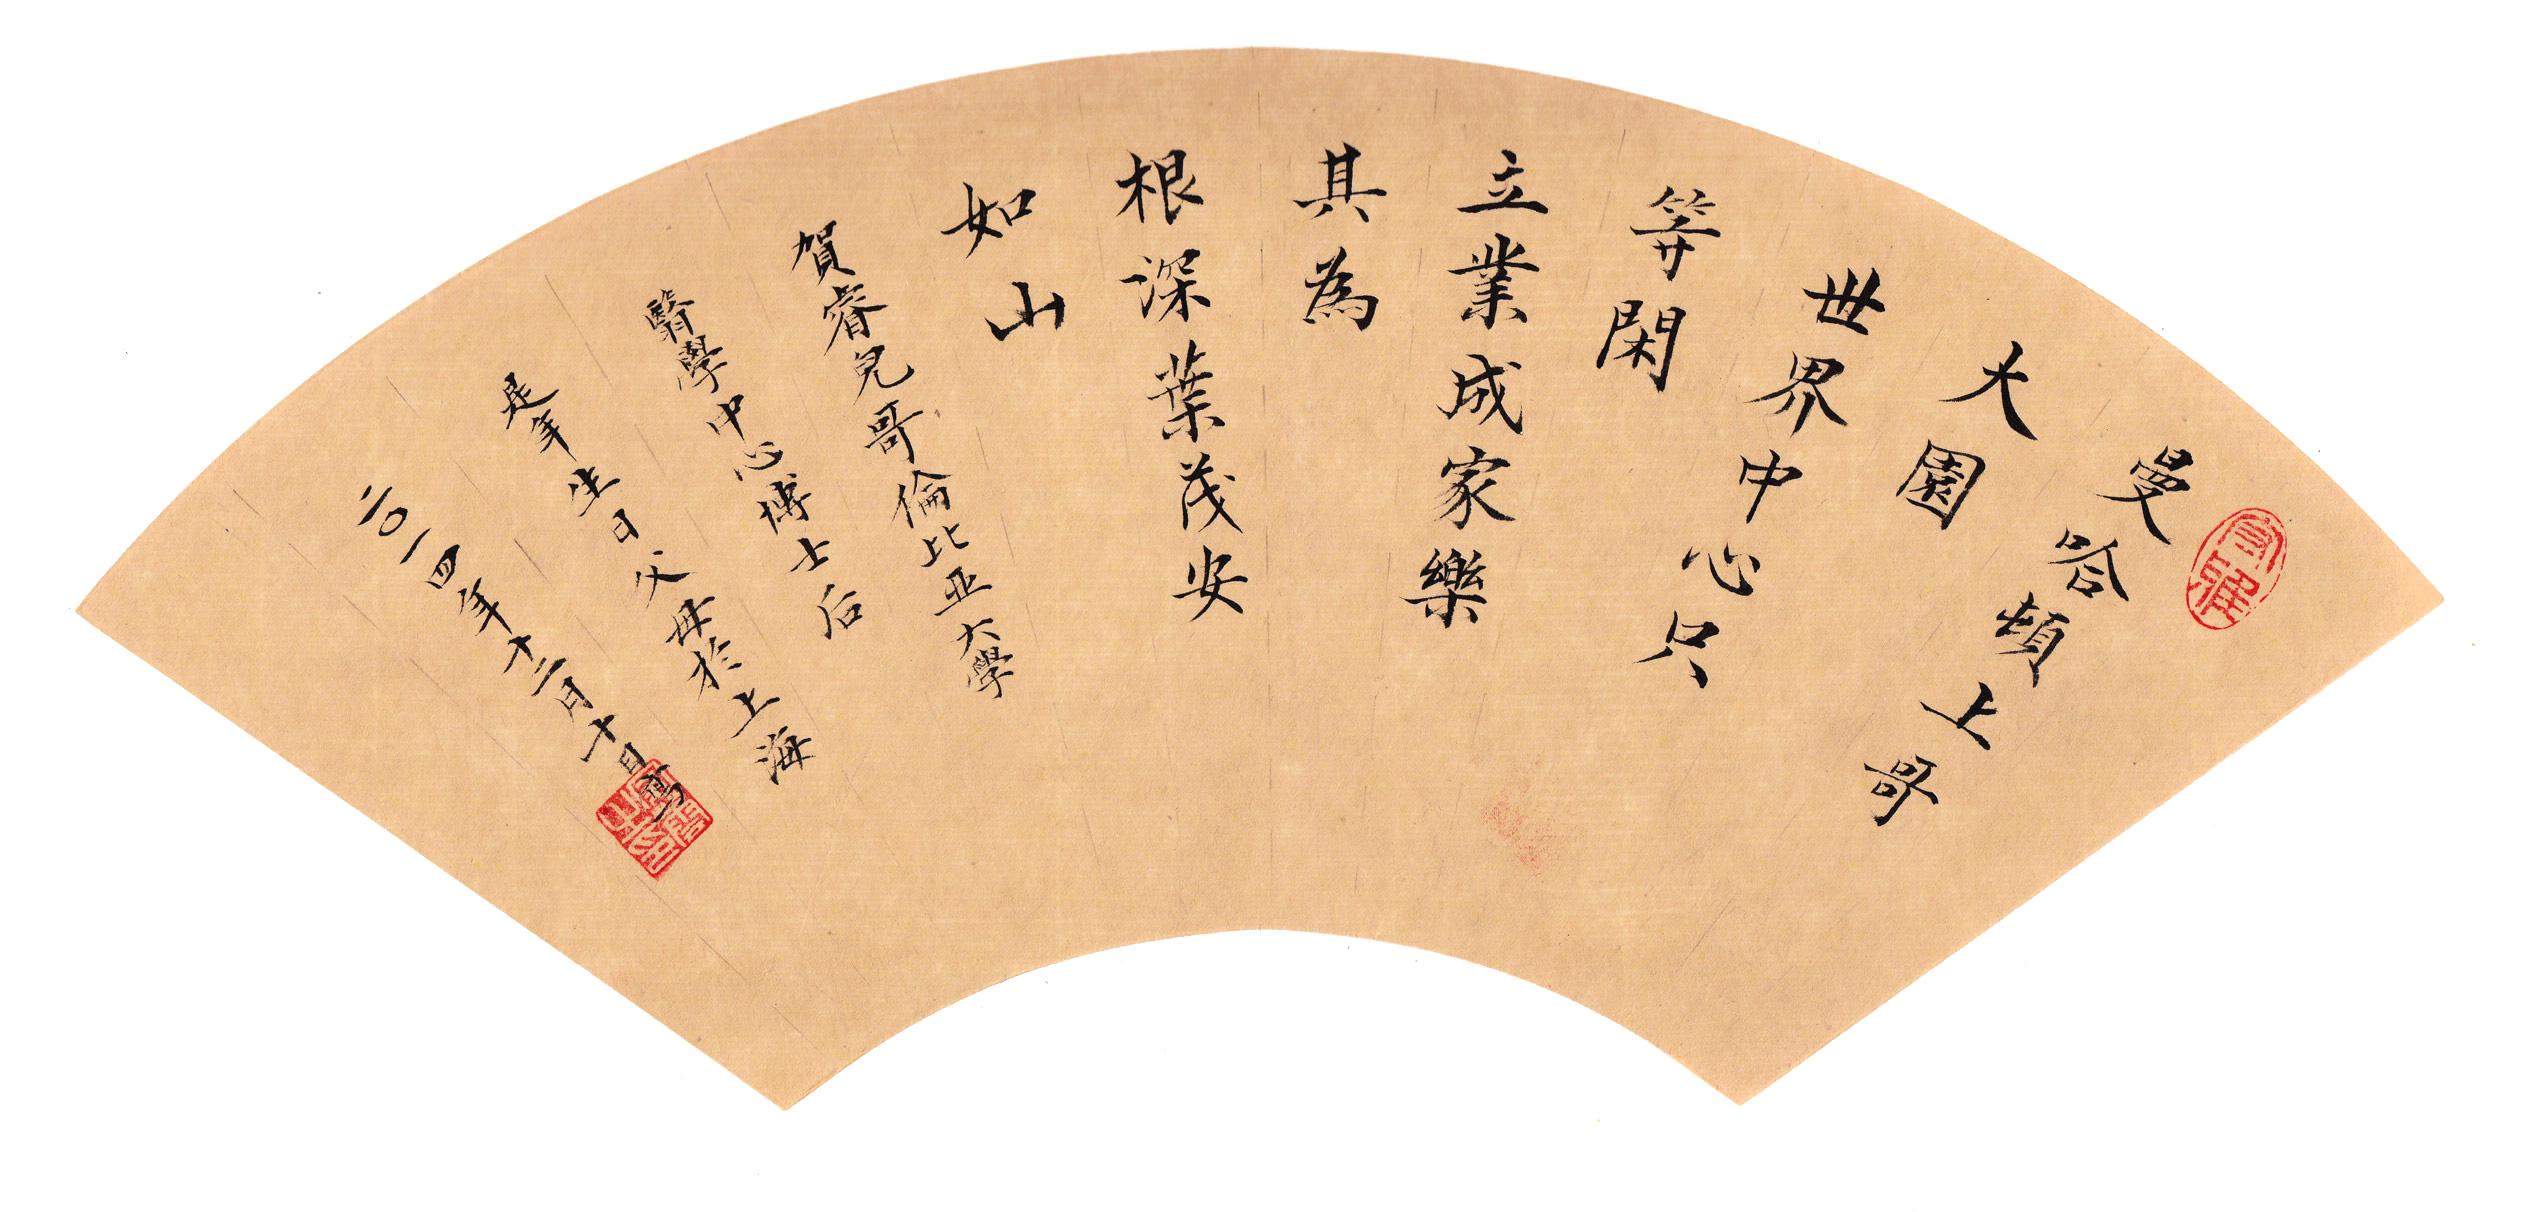 曼哈頓上哥
大園
世界中心只
等閑
立業成家樂
其為
根深葉茂安
如山
賀睿兒哥倫比亞大學
醫學中心博士后
是年生日父母於上海
二〇一四年十二月十日寫